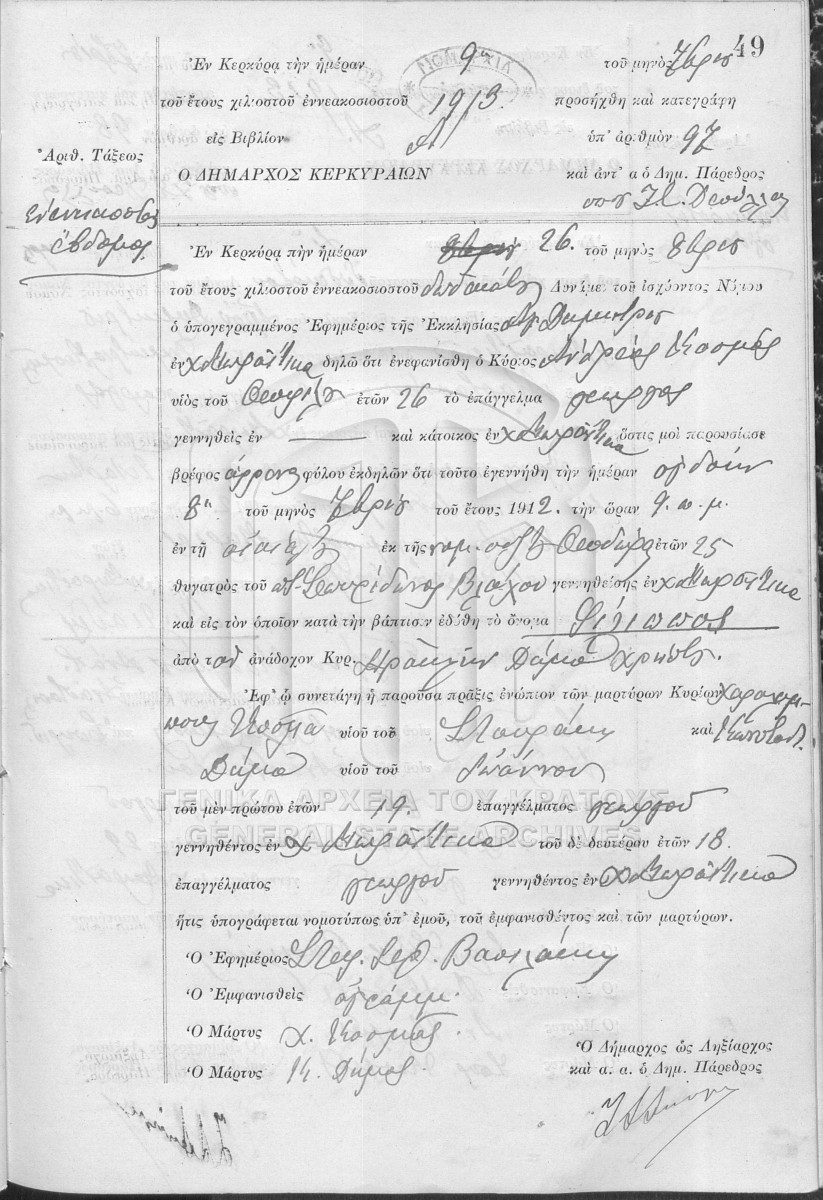 49
Ἐν Κερκύρᾳ τὴν ἡμέραν 9η τοῦ μηνὸς 7βρίου
ΝΟΜΑΡΧΙΑ
τοῦ ἔτους χιλιοστοῦ ἐννεακοσιοστοῦ 1913. προσήχθη καὶ κατεγράφη
εἰς Βιβλίον Α ὑπ' ἀριθμὸν 97
Ἀριθ. Τάξεως
Ο ΔΗΜΑΡΧΟΣ ΚΕΡΚΥΡΑΙΩΝ καὶ ἀντ' α ὁ Δημ. Πάρεδρος
Ἐννενηκοστὸς
ἕβδομος
Ἐν Κερκύρᾳ πὴν ἡμέραν 26. τοῦ μηνὸς 8βρίου
τοῦ ἔτους χιλιοστοῦ ἐννεακοσιοστοῦ δωδεκάτου Δυνάμει τοῦ ἰσχύοντος Νόμου
ὁ ὑπογεγραμμένος Ἐφημέριος τῆς Ἐκκλησίας Ἁγ. Δημητρίου
ἐν χ. Μωραΐτικα δηλῶ ὅτι ἐνεφανίσθη ὁ Κύριος Ἀνδρέας Κοσμᾶς
υἱὸς τοῦ ἐτῶν 26 τὸ ἐπάγγελμα γεωργὸς
γεννηθεὶς ἐν καὶ κάτοικος ἐν χ. Μωραΐτικα ὅστις μοὶ παρουσίασε
βρέφος ἄρρενος φύλου ἐκδηλῶν ὅτι τοῦτο ἐγεννήθη τὴν ἡμέραν ὀγδόην
8η τοῦ μηνὸς 7βρίου τοῦ ἔτους 1912. τὴν ὥραν 9. π. μ.
ἐν τῇ οἰκίᾳ ἐκ τῆς νομ. συζ. Θεοδώρας ἐτῶν 25
θυγατρὸς τοῦ Σπυρίδωνος Βλάχου γεννηθείσης ἐν χ. Μωραΐτικα
καὶ εἰς τὸν ὁποῖον κατὰ τὴν βάπτισιν ἐδόθη τὸ ὄνομα Φίλιππος
ἀπὸ τὸν ἀνάδοχον Κυρ. Δήμα
Ἐφ' ᾧ συνετάγη ἡ παροῦσα πρᾶξις ἐνώπιον τῶν μαρτύρων Κυρίων Χαραλάμ-
πους Κοσμᾶ υἱοῦ τοῦ Σπυράκη καὶ Κωνσταντ.
Δήμα υἱοῦ τοῦ Ἰωάννου
ΓΕΝΙΚΑ ΑΡΧΕΙΑ ΤΟΥ ΚΡΑΤΟΥΣ
τοῦ μὲν πρώτου ἐτῶν 19. ἐπαγγέλματος γεωργοῦ
GENERAL STATE ARCHIVES
γεννηθέντος ἐν χ. Μωραΐτικα τοῦ δὲ δευτέρου ἐτῶν 18.
ἐπαγγέλματος γεωργοῦ γεννηθέντος ἐν χ. Μωραΐτικα
ἥτις ὑπογράφεται νομοτύπως ὑπ' ἐμοῦ, τοῦ ἐμφανισθέντος καὶ τῶν μαρτύρων.
Ὁ Ἐφημέριος Βασιλάκης
Ὁ Ἐμφανισθεὶς ἀγράμμ.
Ὁ Μάρτυς Χ. Κοσμᾶς.
Ὁ Μάρτυς Κ. Δήμας
Ὁ Δήμαρχος ὡς Ληξίαρχος
καὶ α. α. ὁ Δημ. Πάρεδρος